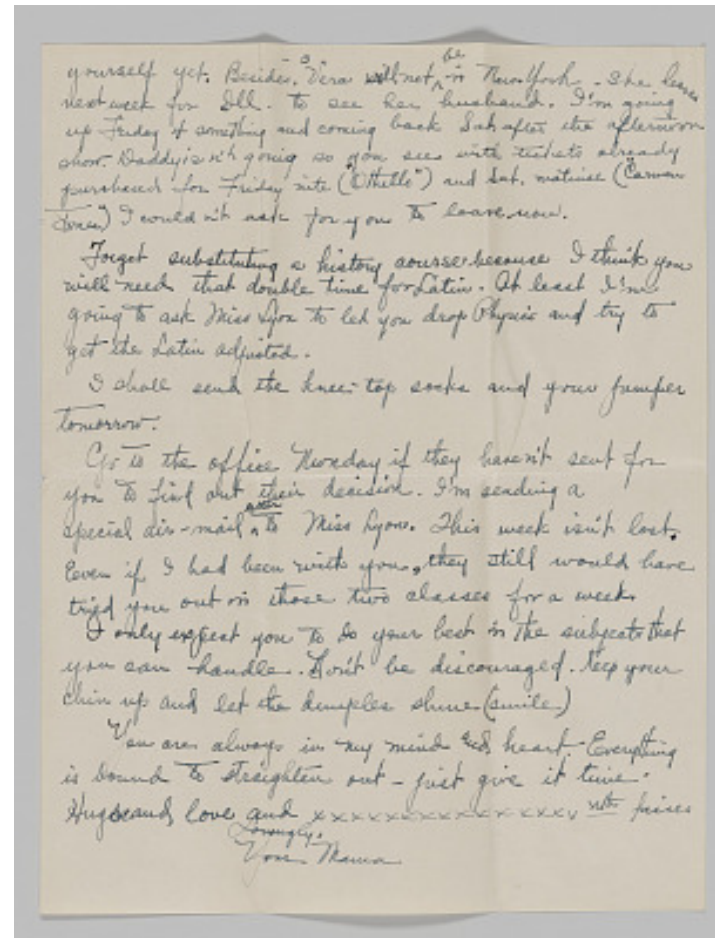 yourself yet. Besides, Vera will not be in New York. She leaves
next week for Ill. to see her husband. I'm going
up Friday & something and coming back Sat after the afternoon
show. Daddy isn't going so you see with tickets already
purchased for Friday nite ("Othello") and Sat. matinee ("Carmen
Jones") I couldn't ask for you to leave now.
Forget substituting a history course because I think you
will need that double time for Latin. At least I'm
going to ask Miss Lyon to let you drop Physics and try to
get the Latin adjusted.
I shall send the knee-top socks and your jumper
tomorrow.
Go to the office Monday if they haven't sent for
you to find out their decision. I'm sending a
special air-mail to Miss Lyon. This week isn't lost.
Even if I had been with you, they still would have
tried you out in those two classes for a week.
I only expect you to do your best in the subjects that
you can handle. Don't be discouraged. Keep your
chin up and let the dimples shine (smile)
You are always in my mind and heart. Everything
is bound to straighten out - just give it time.
Hugs and love and xxxxxxxxxxxxxxxxxx nth kisses
Lovingly,
Your Mama